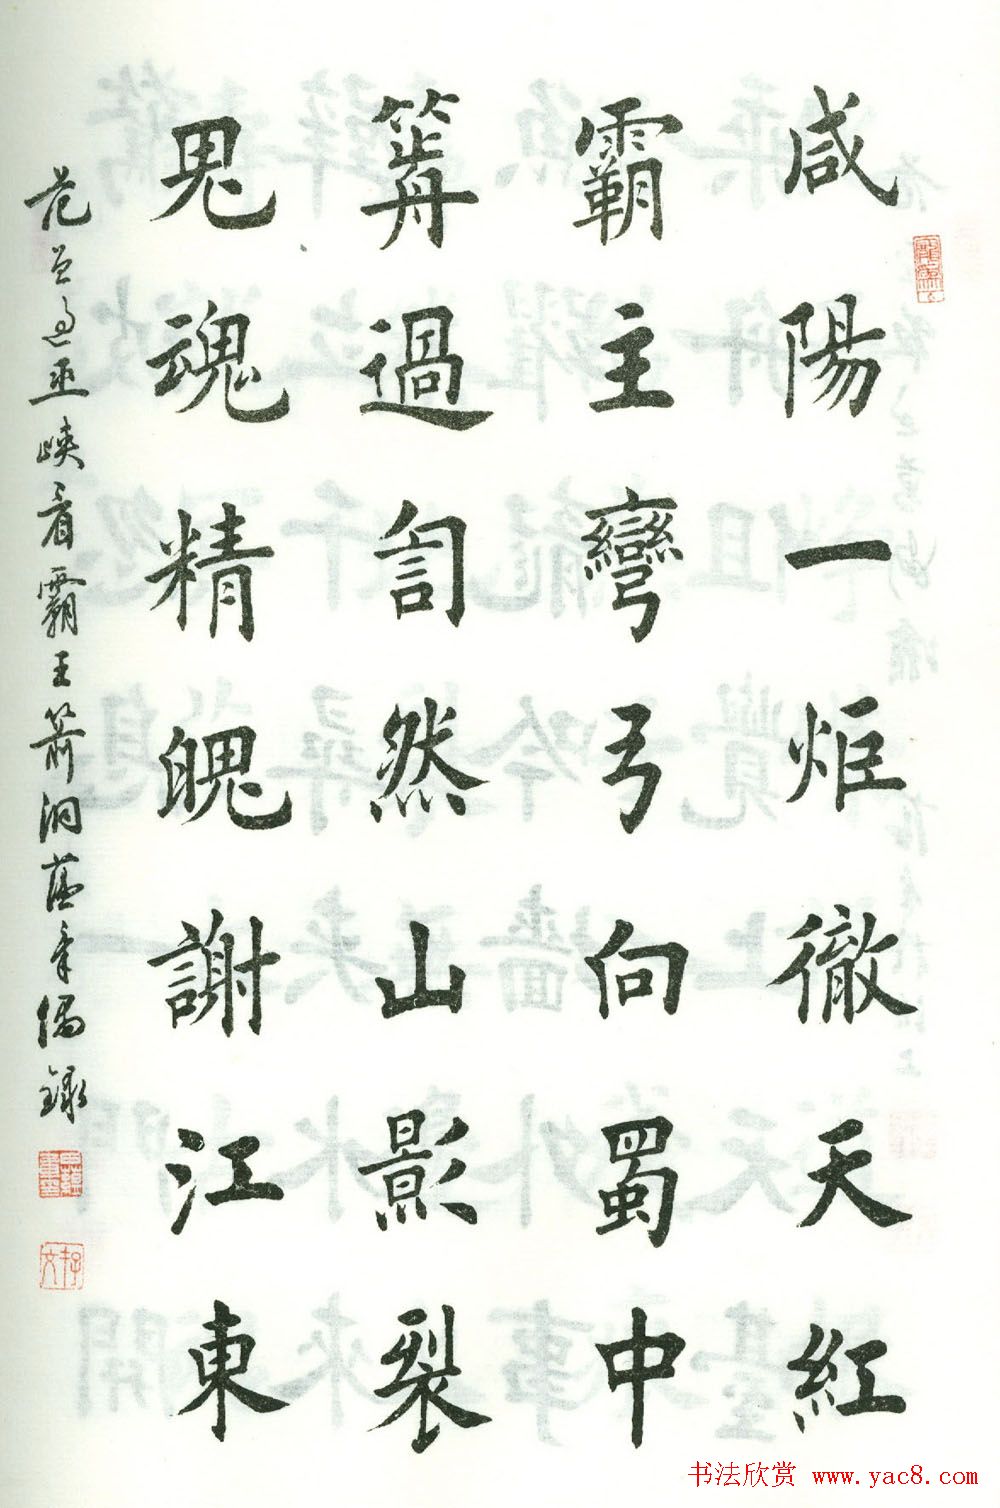 咸陽一炬徹天紅
霸主彎弓向蜀中
箭過訇然山影裂
鬼魂精魄謝江東
范曾過巫峽看霸王箭洞錄
书法欣赏 www.yac8.com